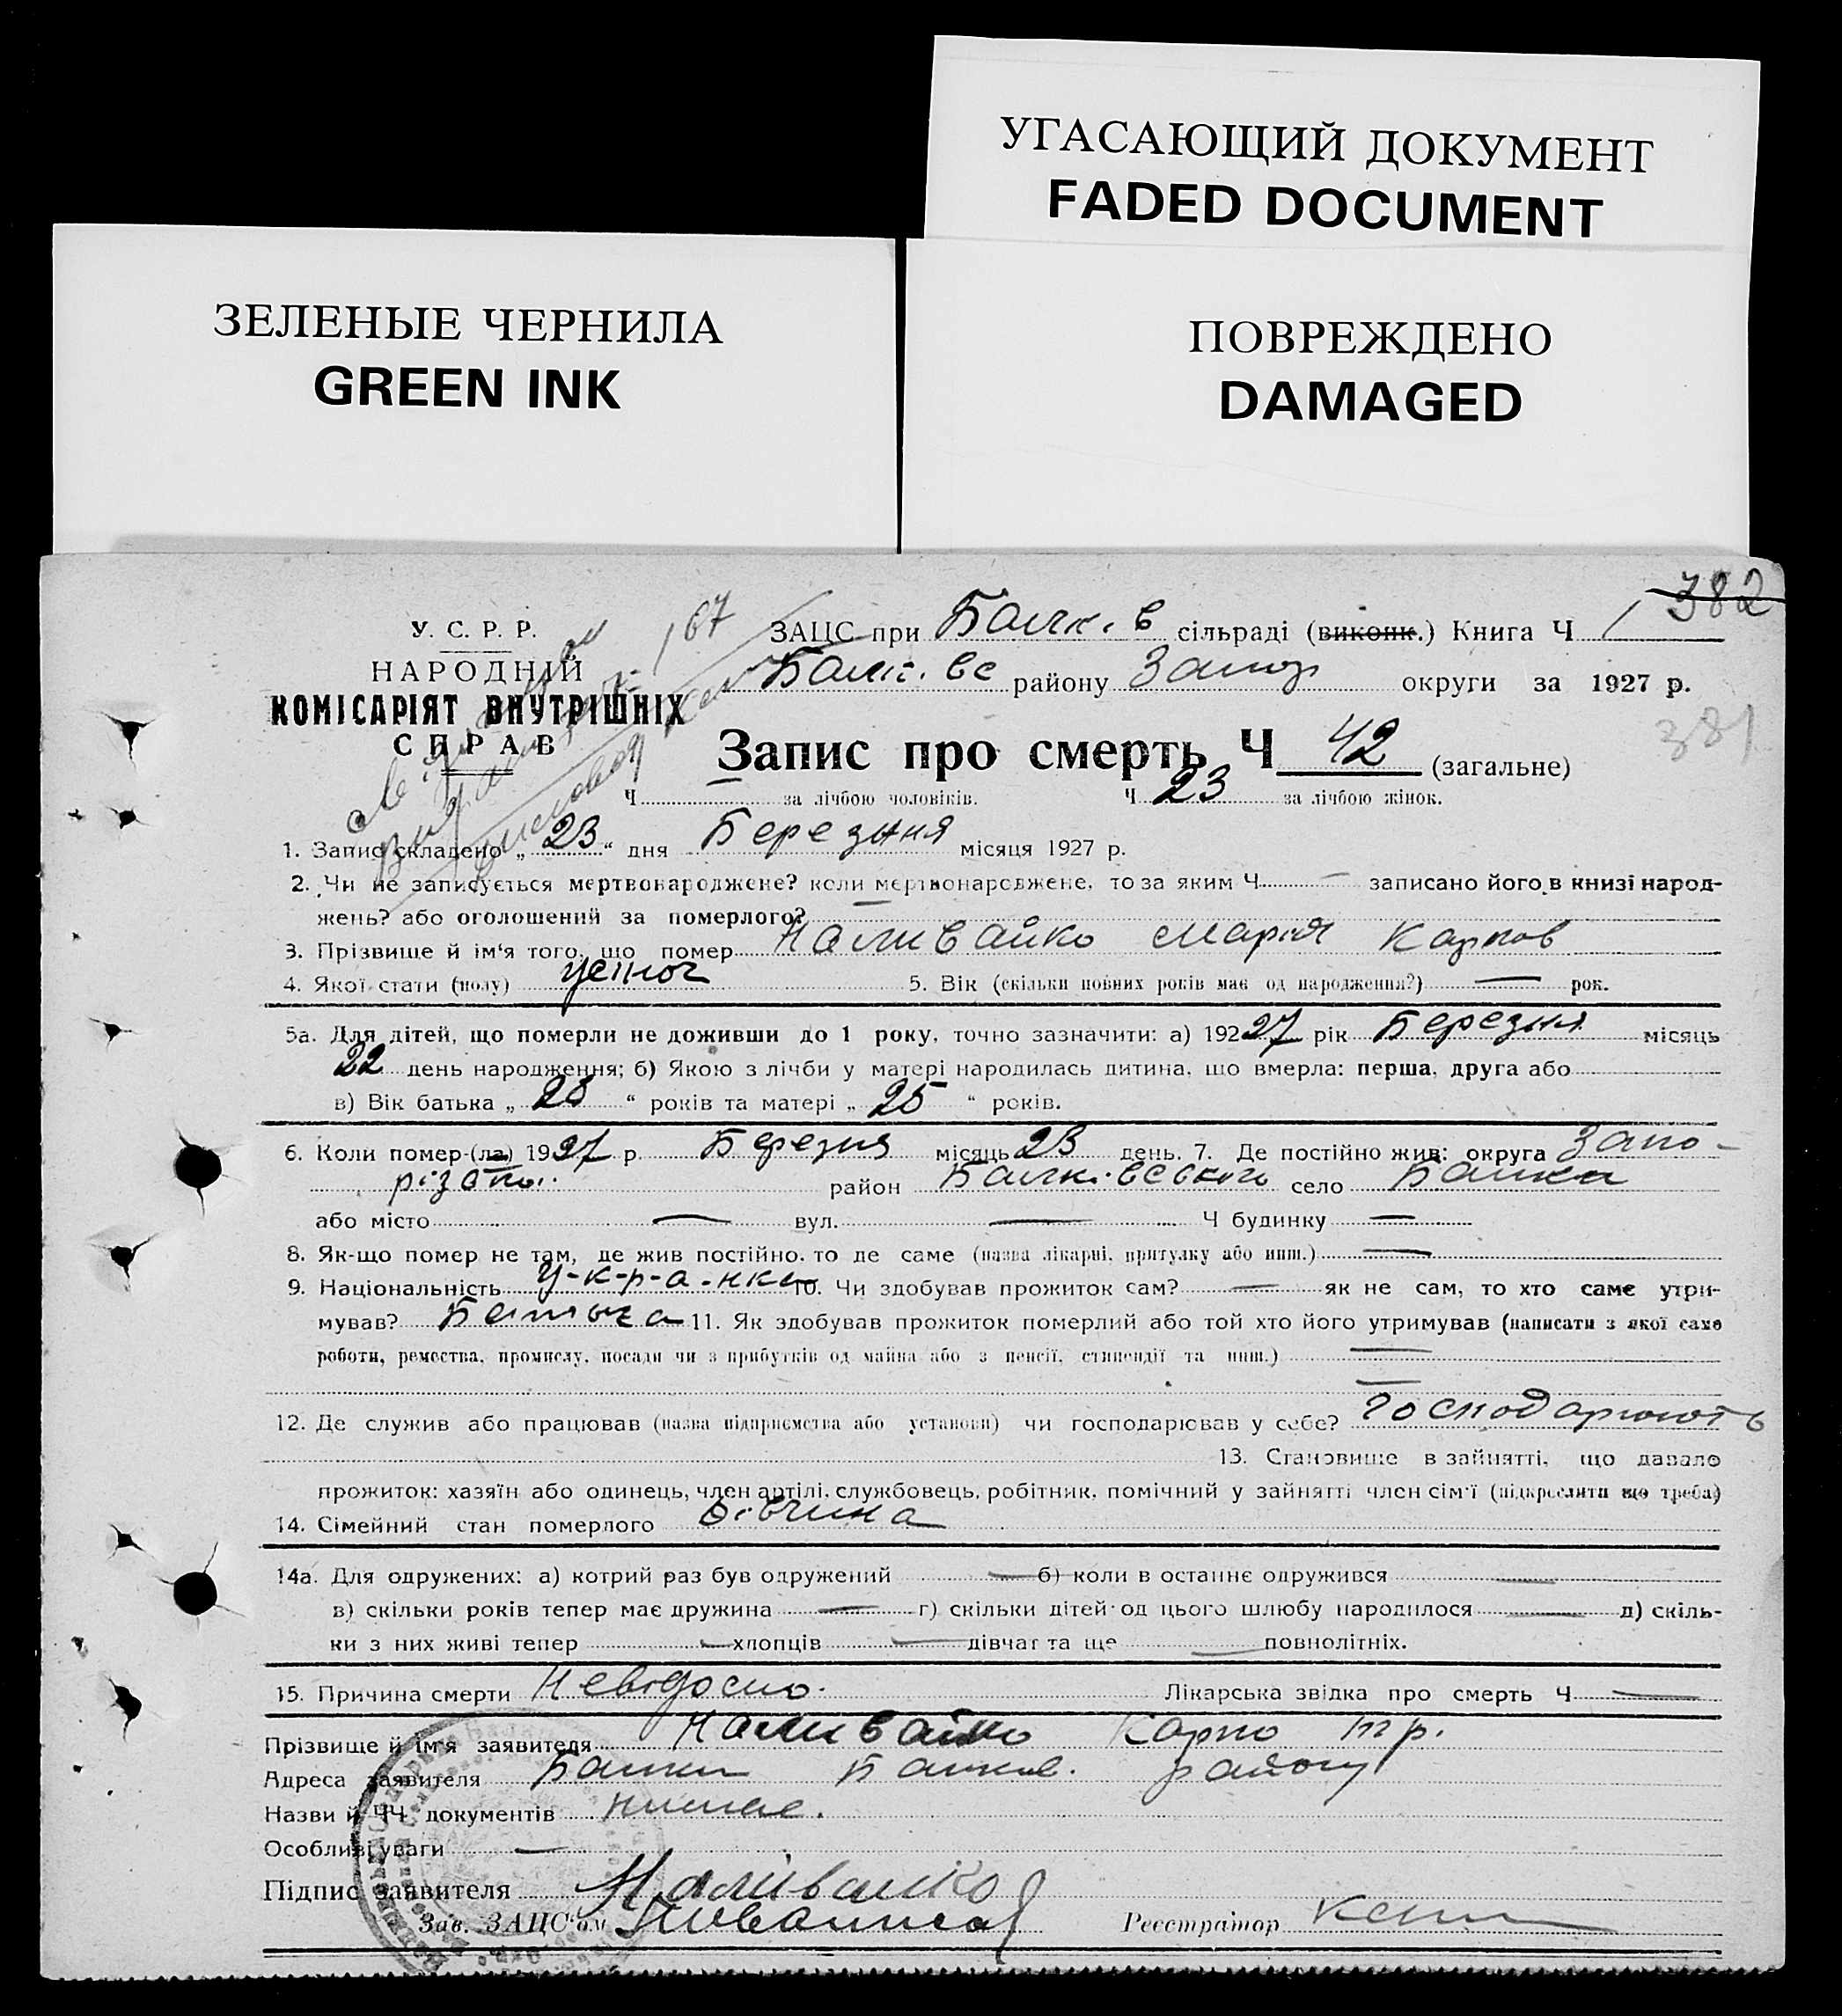 УГАСАЮЩИЙ ДОКУМЕНТ
FADED DOCUMENT
ЗЕЛЕНЫЕ ЧЕРНИЛА
GREEN INK
ПОВРЕЖДЕНО
DAMAGED
382
У. С. Р. Р.
НАРОДНІЙ
КОМІСАРІЯТ ВНУТРІШНІХ
СПРАВ
167
ЗАЦС при Балк.в сільраді (виконк.) Книга Ч 1
Балк.вс району Запор округи за 1927 р.
381
Запис про смерть Ч 42 (загальне)
Ч за лічбою чоловіків. Ч 23 за лічбою жінок.
1. Запис складено „23“ дня Березня місяця 1927 р.
2. Чи не записується мертвонароджене? коли мертвонароджене, то за яким Ч — записано його в книзі народ-
жень? або оголошений за померлого? —
3. Прізвище й ім'я того, що помер Наливайко Марія Карпов
4. Якої стати (полу) жіноч 5. Вік (скільки повних років має од народження?) — рок.
5а. Для дітей, що померли не доживши до 1 року, точно зазначити: а) 19227 рік Березня місяць
22 день народження; б) Якою з лічби у матері народилась дитина, що вмерла: перша, друга або
в) Вік батька „ “ років та матері „25“ років.
6. Коли помер-(ла) 1927 р. Березня місяць 23 день. 7. Де постійно жив: округа Запо-
різька район Балківського село Балка
або місто — вул. — Ч будинку —
8. Як-що помер не там, де жив постійно, то де саме (назва лікарні, притулку або инш.) —
9. Національність У-к-р-а-нка 10. Чи здобував прожиток сам? — як не сам, то хто саме утри-
мував? Батько 11. Як здобував прожиток померлий або той хто його утримував (написати з якої саме
роботи, ремества, промислу, посади чи з прибутків од майна або з пенсії, стипендії та инш.) —
12. Де служив або працював (назва підприємства або установи) чи господарював у себе? Господарюють
13. Становище в зайнятті, що давало
прожиток: хазяїн або одинець, член артілі, службовець, робітник, помічний у зайнятті член сім'ї (підкреслити що треба)
14. Сімейний стан померлого дівчина
14а. Для одружених: а) котрий раз був одружений — б) коли в останнє одружився —
в) скільки років тепер має дружина — г) скільки дітей од цього шлюбу народилося — д) скіль-
ки з них живі тепер — хлопців — дівчат та ще — повнолітніх.
15. Причина смерти Невідомо. Лікарська звідка про смерть Ч —
Прізвище й ім'я заявителя Наливайко Карпо Тр.
Адреса заявителя Балки Балков. району
Назви й ЧЧ документів немає.
Особливі уваги —
Підпис заявителя Наливайко
Зав. ЗАЦС'ом Реєстратор